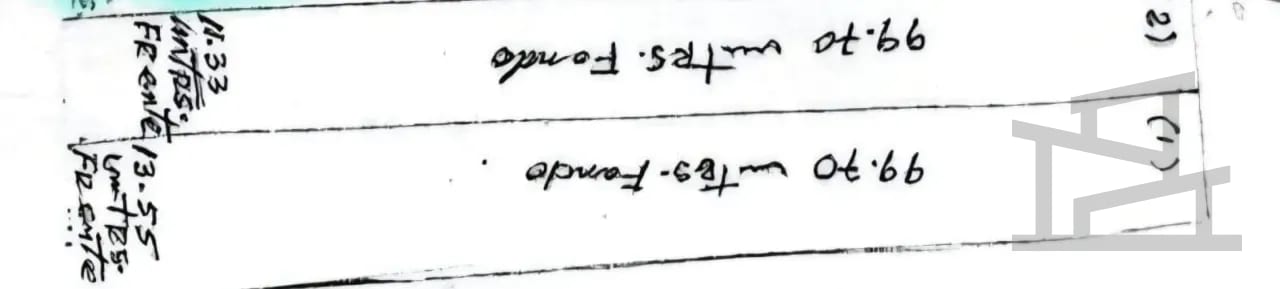 2)
99.70 mTRS. Fondo
11.33
mTRS.
FRente
(1)
99.70 mTRS. Fondo
13.55
mTRS.
FRente